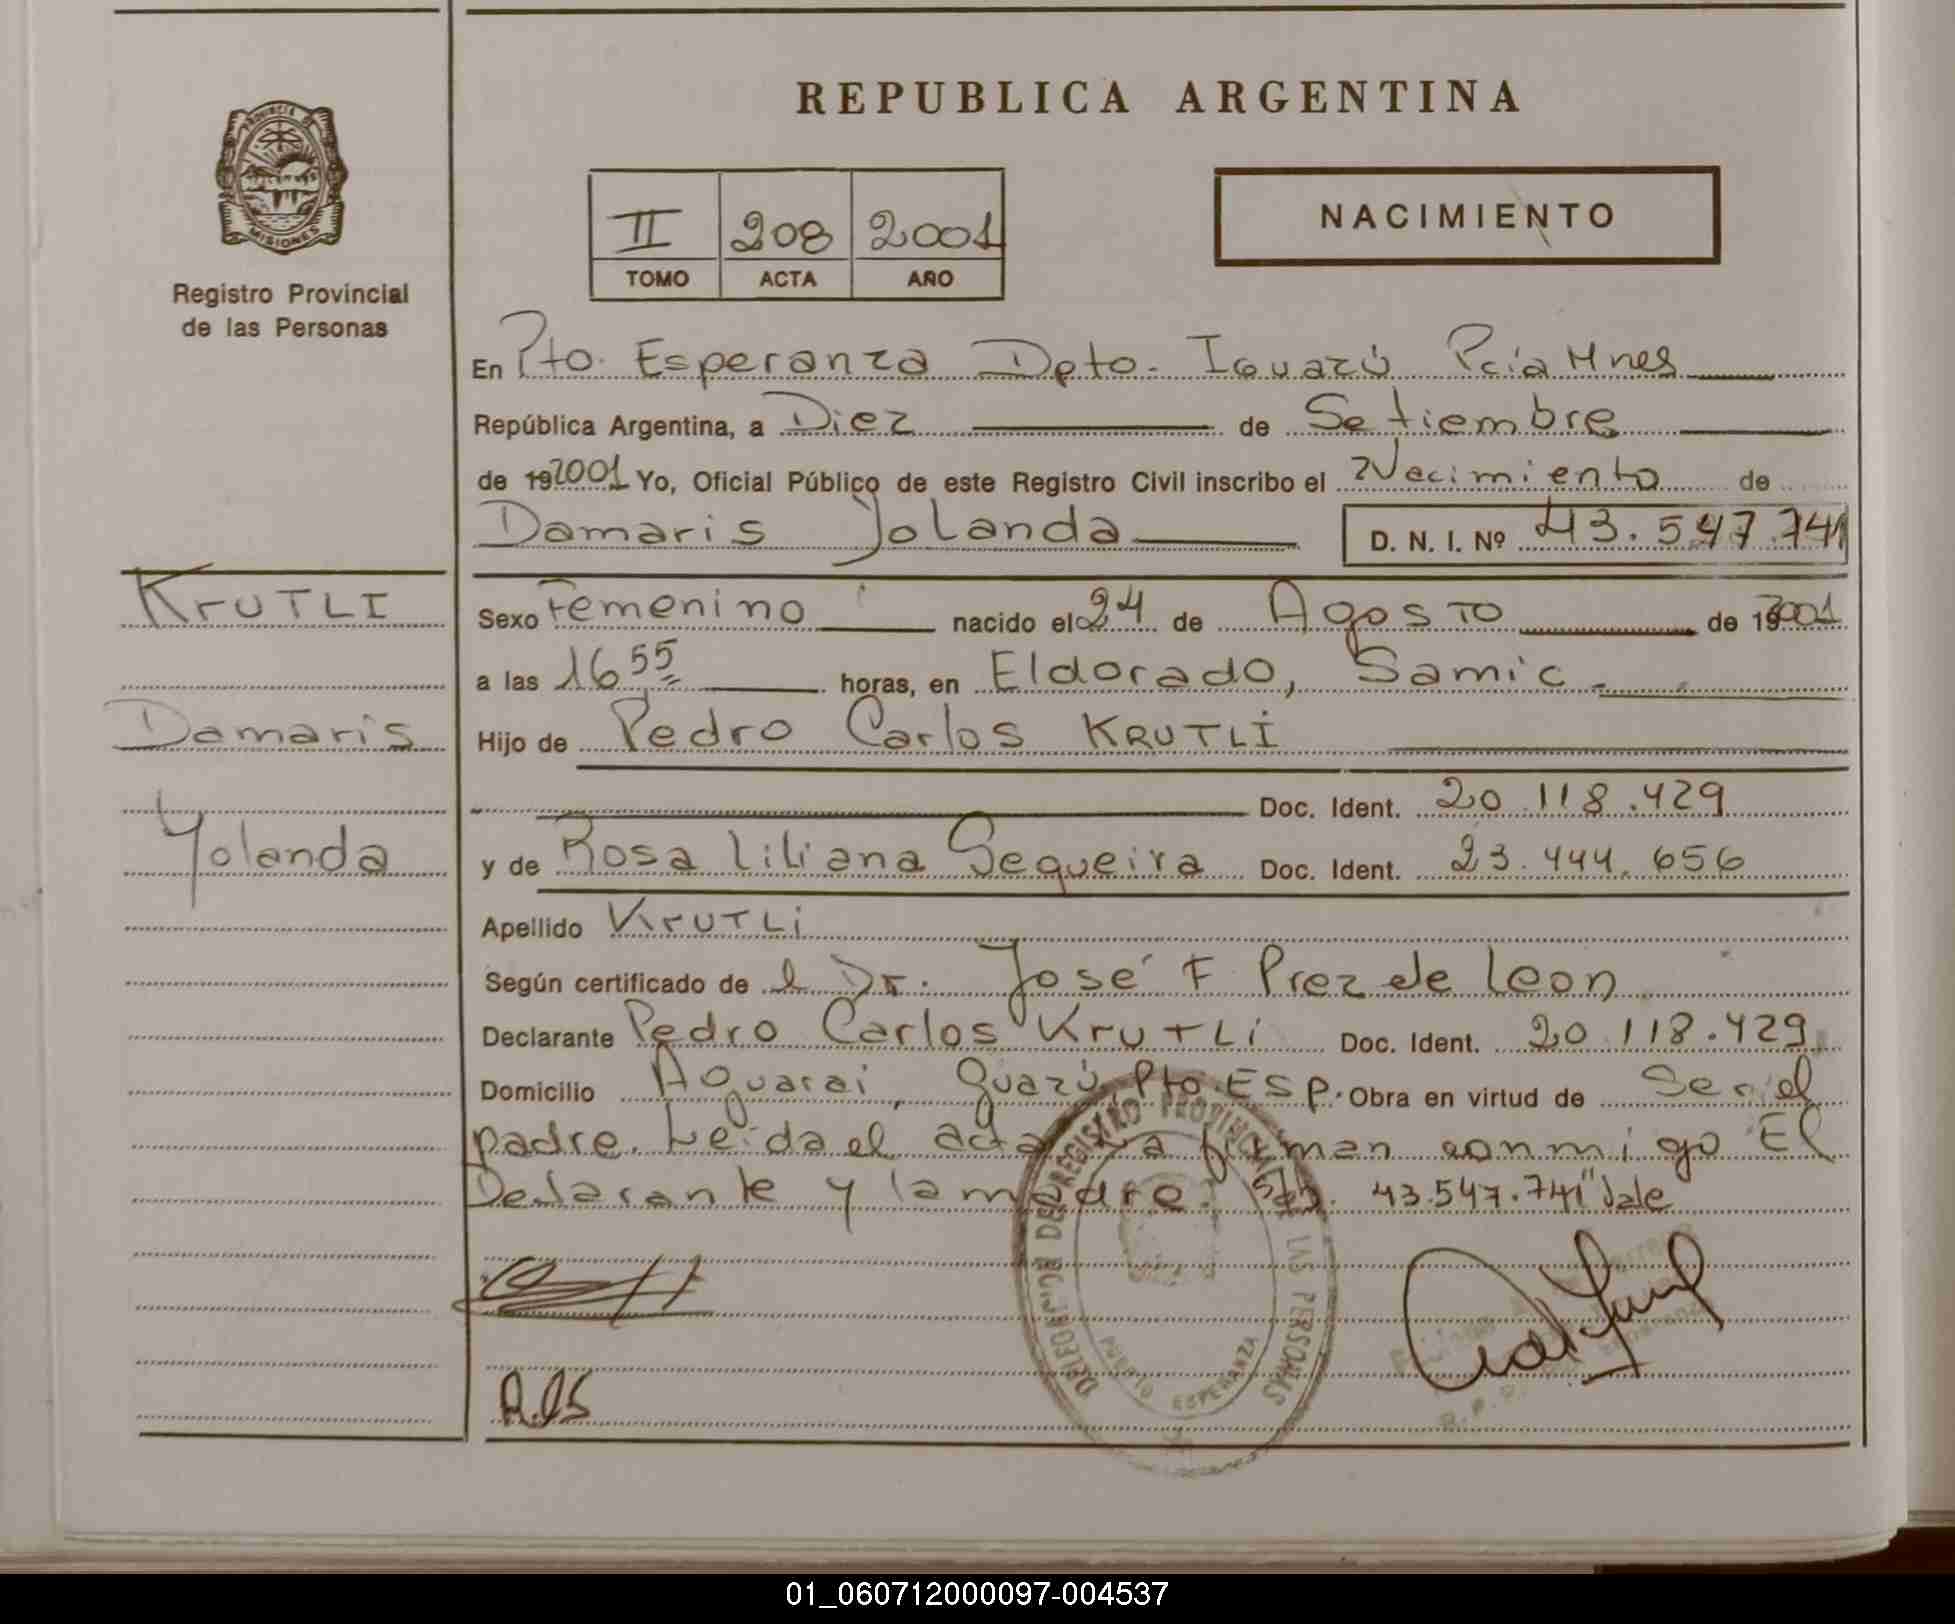 REPUBLICA ARGENTINA
PROVINCIA DE
MISIONES
Registro Provincial
de las Personas
II 208 2001
TOMO ACTA AÑO
NACIMIENTO
En Pto. Esperanza Dpto. Iguazú Pcia Mnes
República Argentina, a Diez de Setiembre
de 19 2001 Yo, Oficial Público de este Registro Civil inscribo el Nacimiento de
Damaris Yolanda D. N. I. Nº 43.547.741
KRUTLI
Damaris
Yolanda
Sexo Femenino nacido el 24 de Agosto de 19 2001
a las 16 55 horas, en Eldorado, Samic
Hijo de Pedro Carlos KRUTLI
Doc. Ident. 20.118.429
y de Rosa Liliana Sequeira Doc. Ident. 23.444.656
Apellido KRUTLI
Según certificado de l Dr. José F Prez de Leon
Declarante Pedro Carlos KRUTLI Doc. Ident. 20.118.429
Domicilio Aguarai Guazú, Pto. Esp. Obra en virtud de Ser el
padre. Leida el acta la firman conmigo El
Declarante y la madre. 43.547.741" Vale
DELEGACION DEL REGISTRO PROVINCIAL DE LAS PERSONAS
PUERTO ESPERANZA
R.L.S
01_060712000097-004537